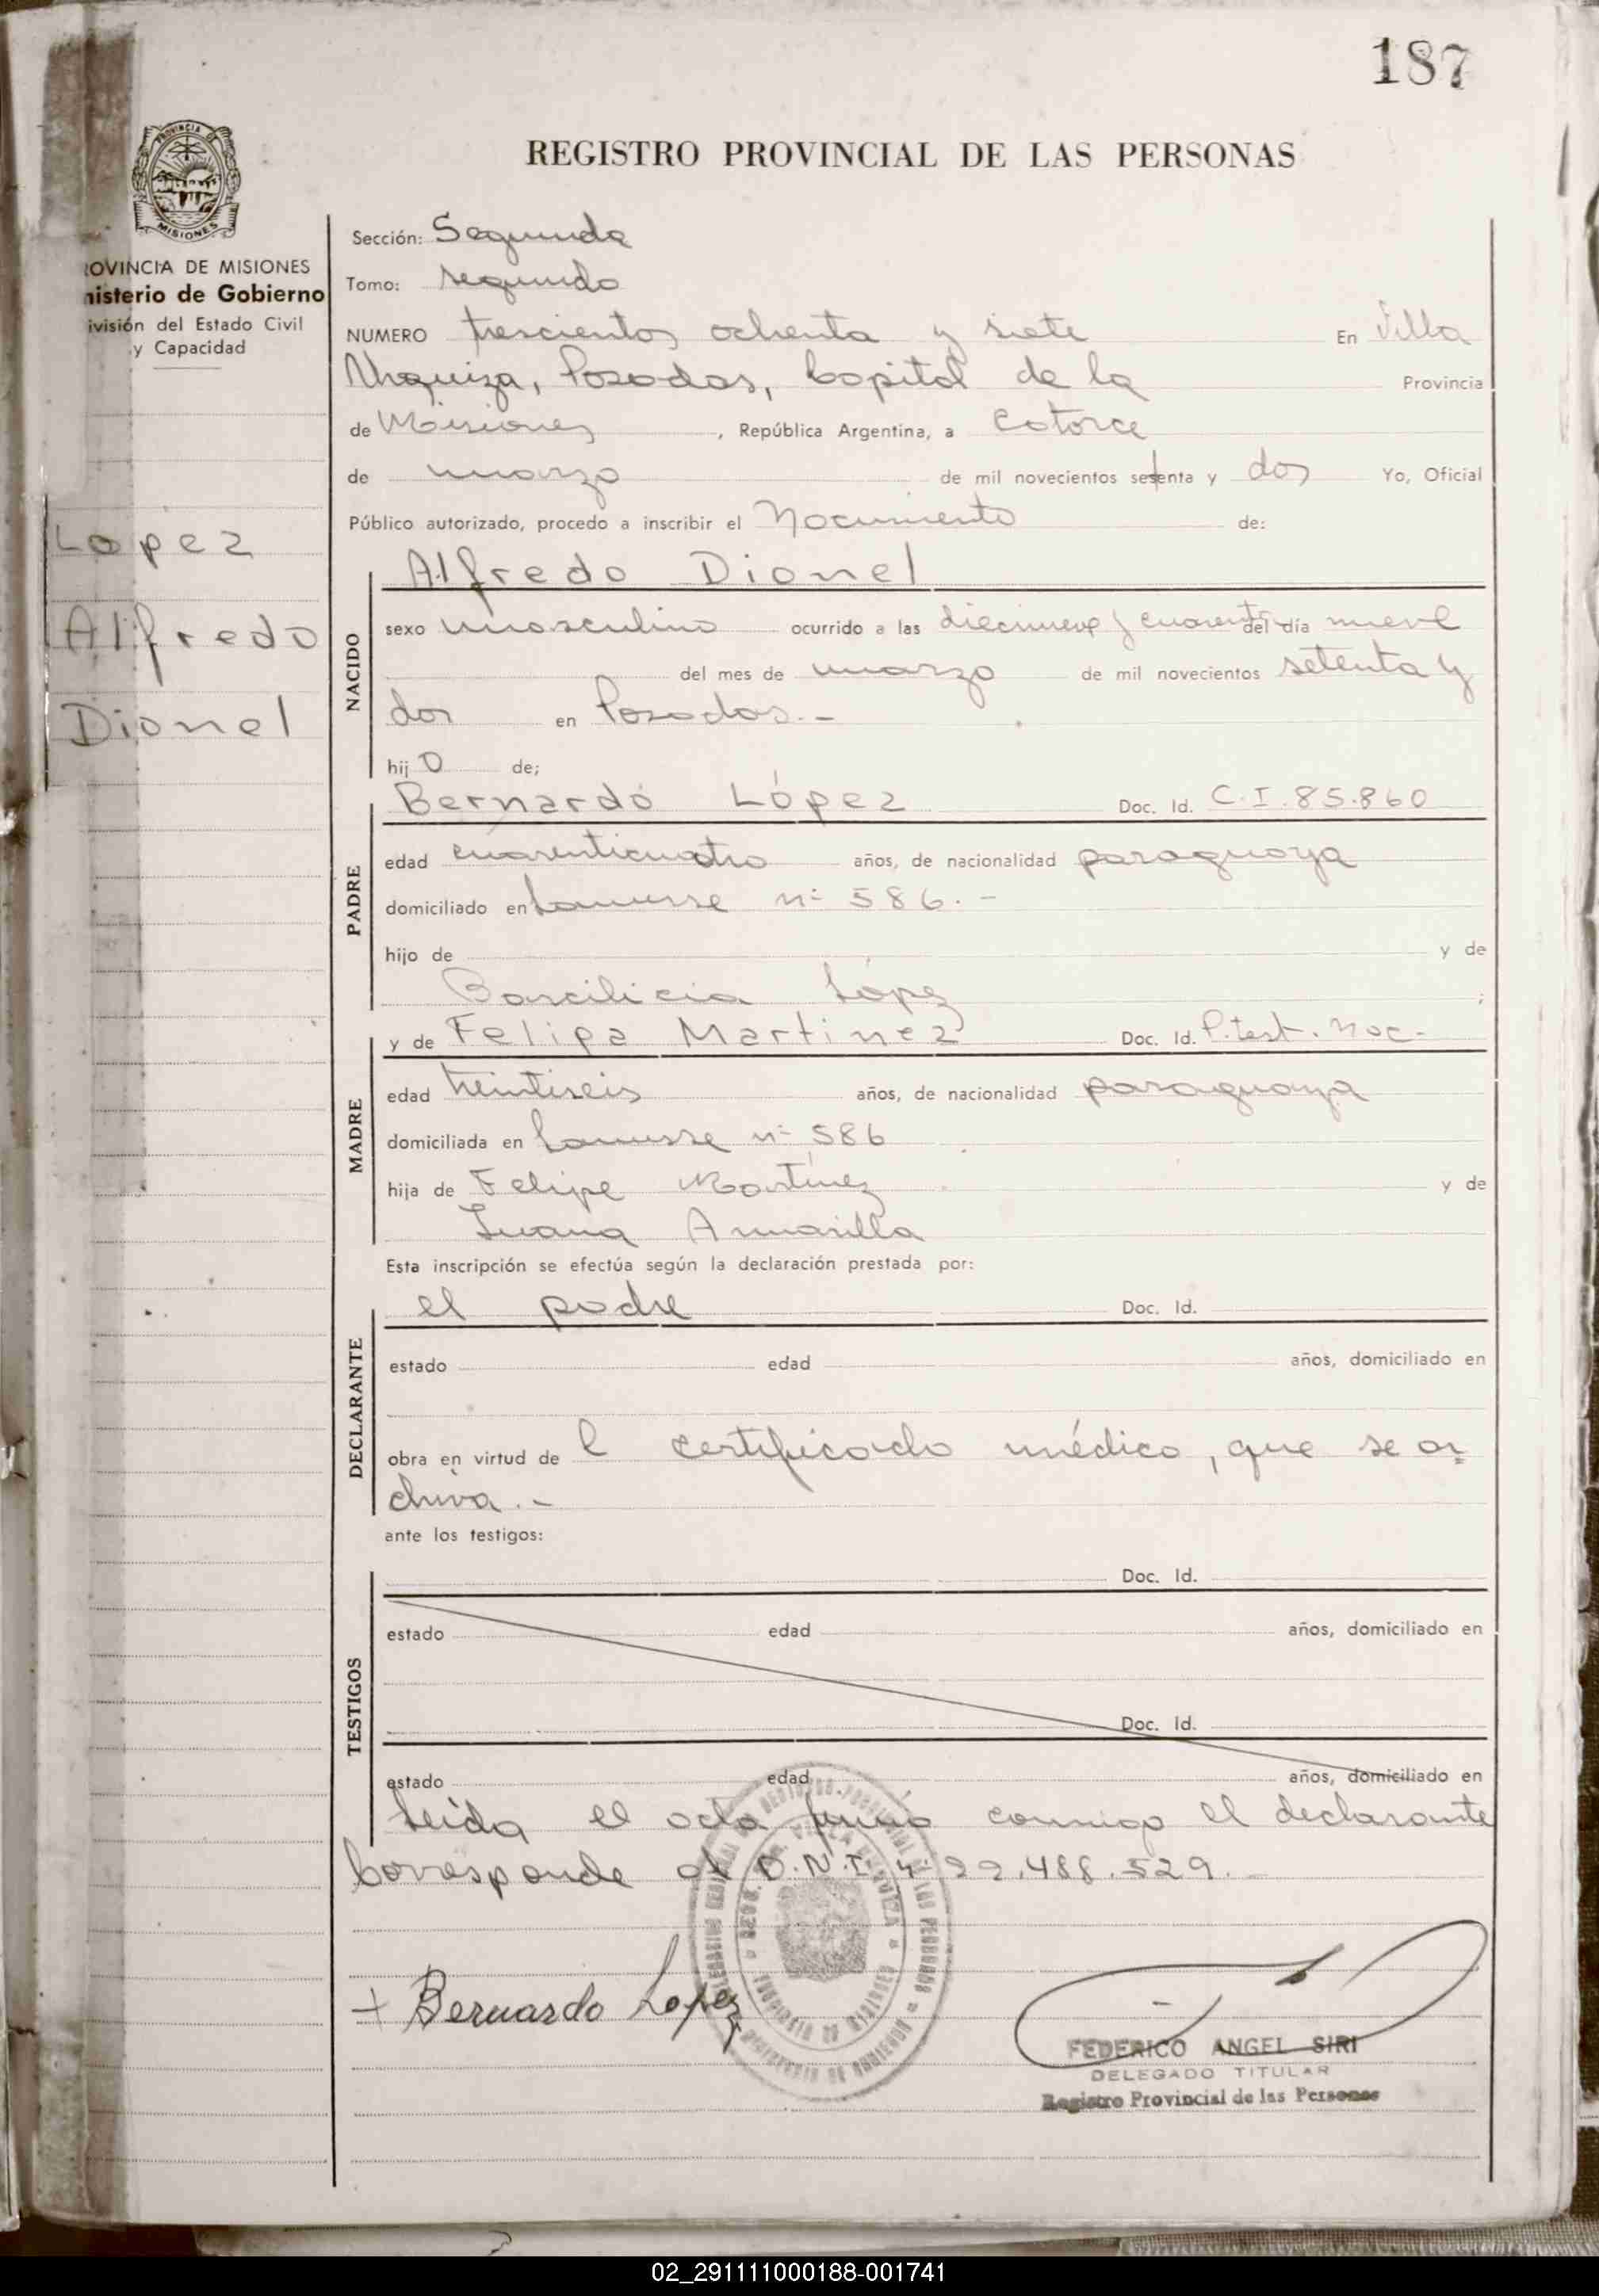 187
REGISTRO PROVINCIAL DE LAS PERSONAS
PROVINCIA DE
MISIONES
ROVINCIA DE MISIONES
nisterio de Gobierno
ivisión del Estado Civil
y Capacidad
Lopez
Alfredo
Dionel
Sección: Segunda
Tomo: segundo
NUMERO trescientos ochenta y siete En Villa
Urquiza, Posadas, Capital de la Provincia
de Misiones, República Argentina, a catorce
de marzo de mil novecientos setenta y dos Yo, Oficial
Público autorizado, procedo a inscribir el Nacimiento de:
NACIDO
Alfredo Dionel
sexo masculino ocurrido a las diecinueve y cuarenta del día nueve
del mes de marzo de mil novecientos setenta y
dos en Posadas.-
hijo de;
PADRE
Bernardo López Doc. Id. C.I. 85.860
edad cuarenticuatro años, de nacionalidad paraguaya
domiciliado en Lanusse nº 586.-
hijo de y de
López ;
MADRE
y de Felipa Martinez Doc. Id. P. test. nac.
edad treintiseis años, de nacionalidad paraguaya
domiciliada en Lanusse nº 586
hija de Felipe Martínez y de
Juana Amarilla
Esta inscripción se efectúa según la declaración prestada por:
DECLARANTE
el padre Doc. Id.
estado edad años, domiciliado en
obra en virtud de l certificado médico, que se ar=
chiva.-
ante los testigos:
TESTIGOS
Doc. Id.
estado edad años, domiciliado en
Doc. Id.
estado edad años, domiciliado en
Leída el acta firmó conmigo el declarante
Corresponde al D.N.I. nº 22.488.529.-
+ Bernardo Lopez
FEDERICO ANGEL SIRI
DELEGADO TITULAR
Registro Provincial de las Personas
02_291111000188-001741